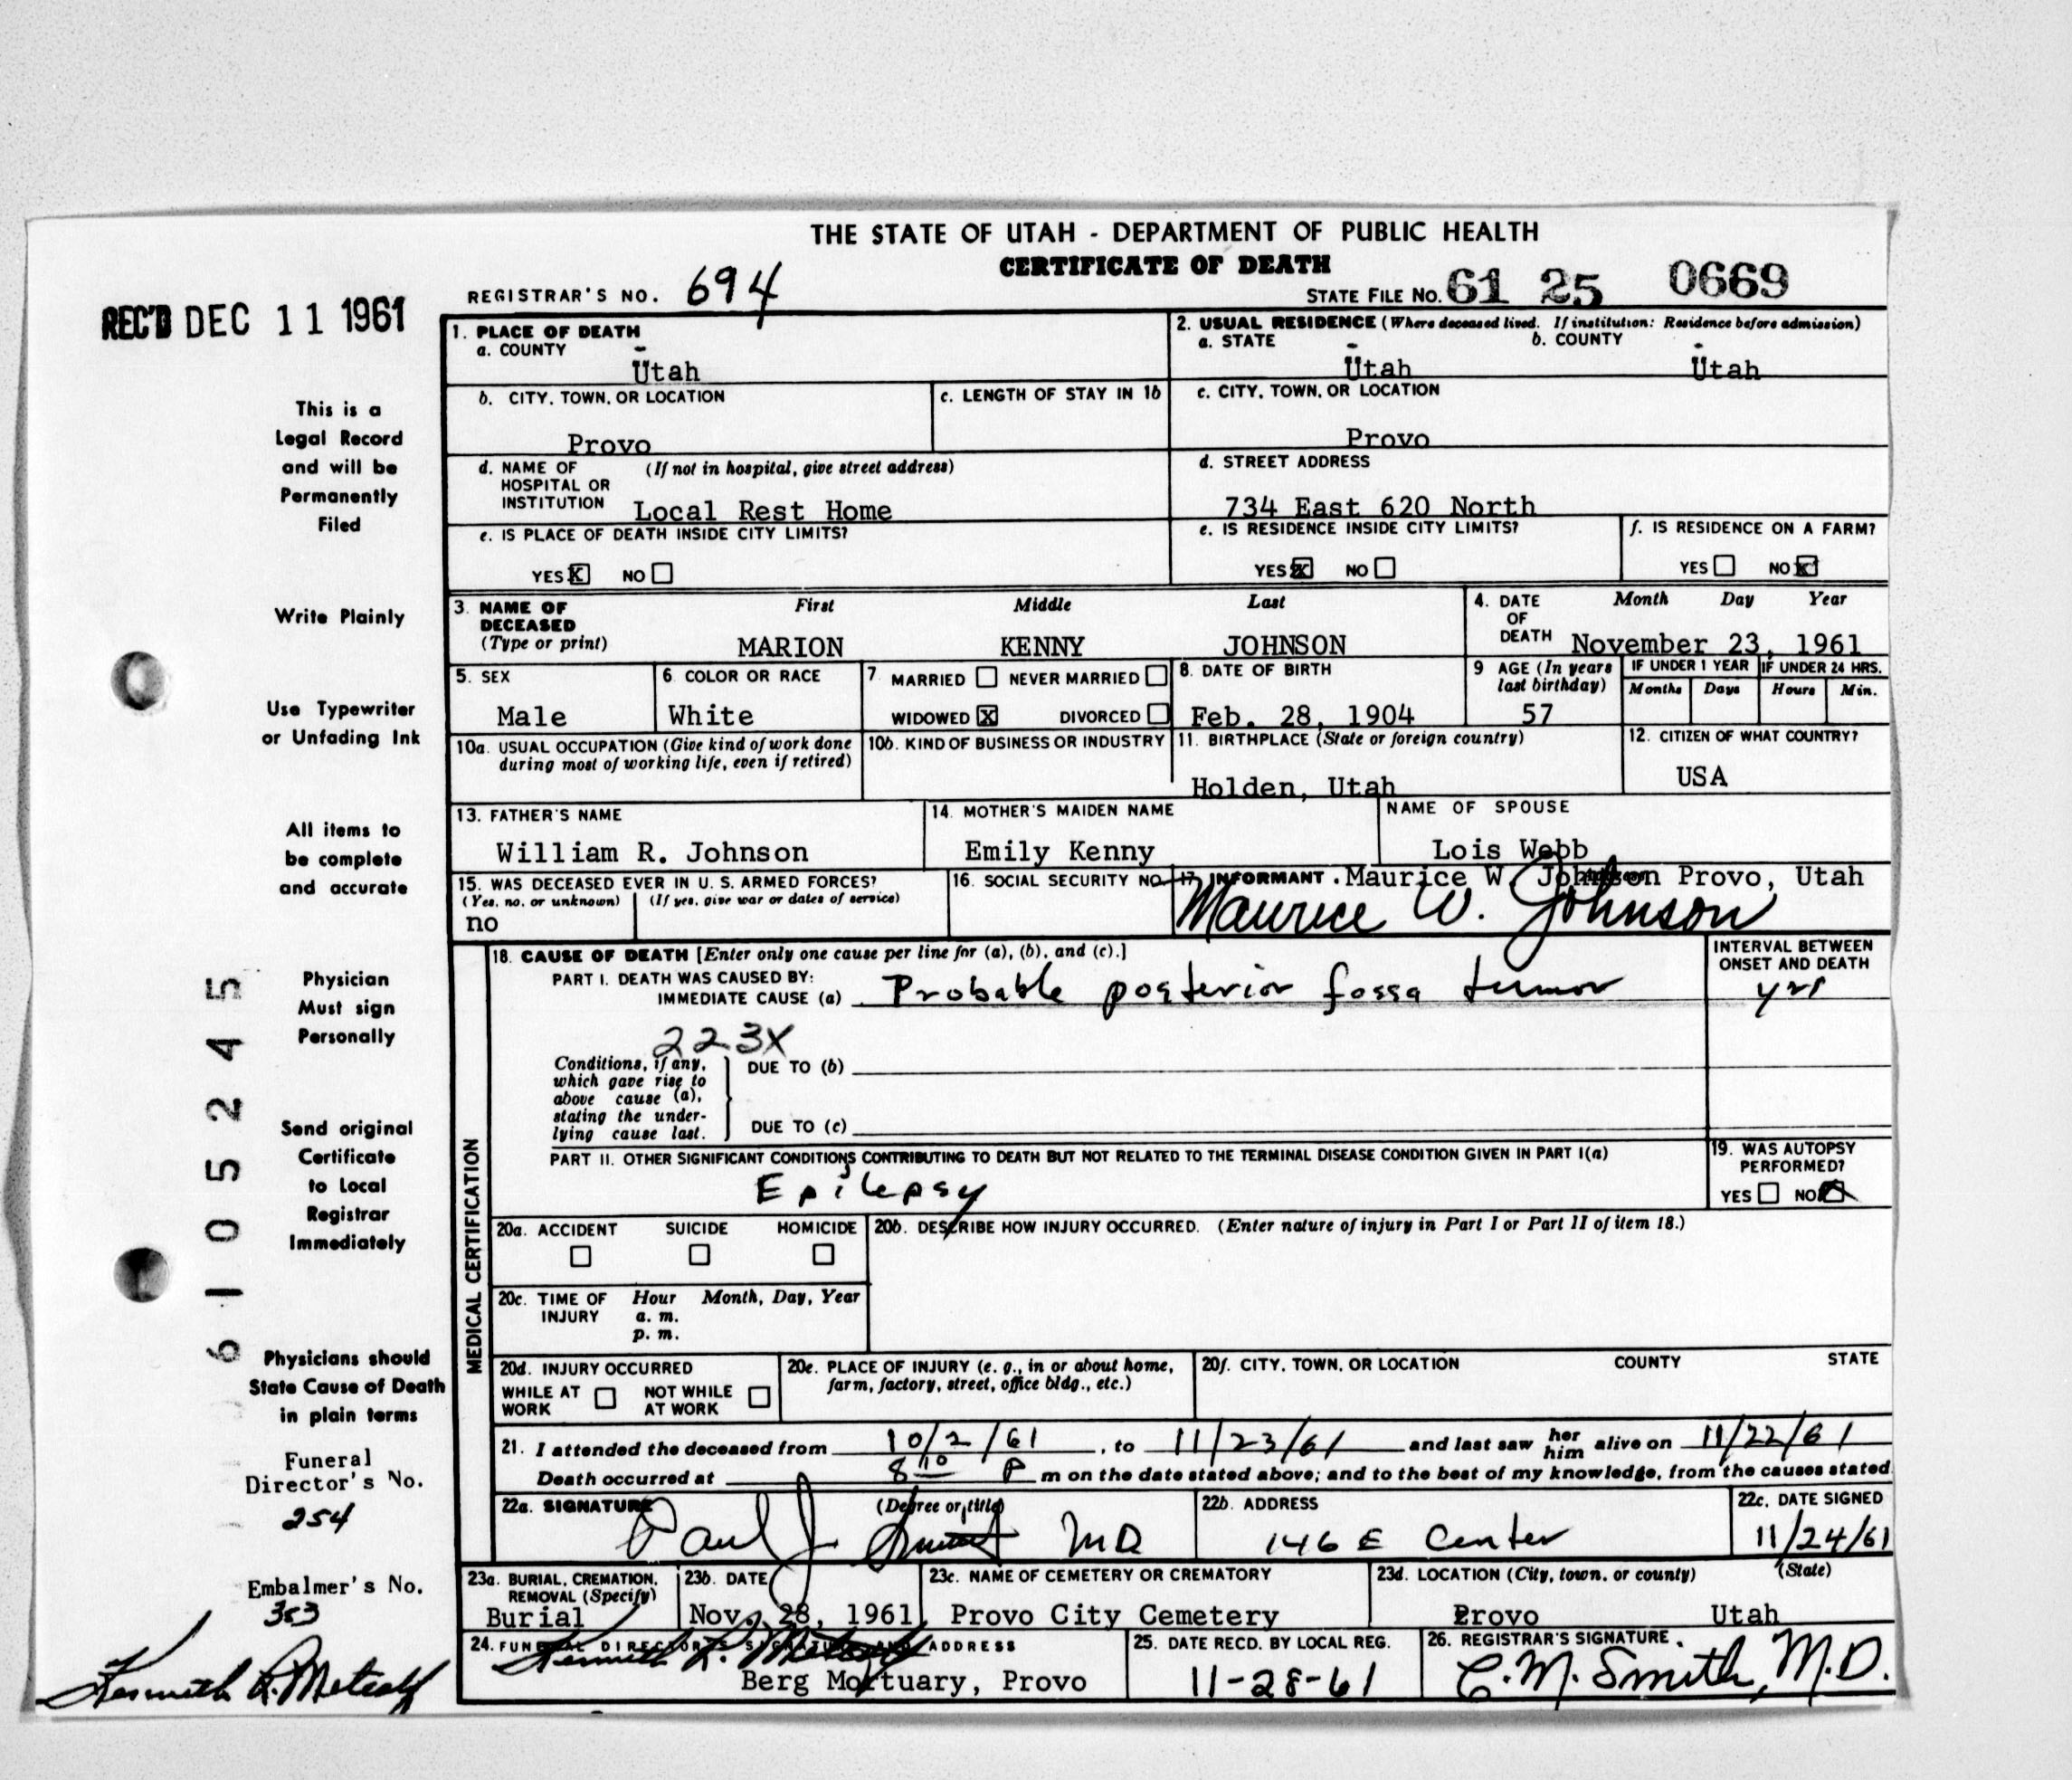 THE STATE OF UTAH - DEPARTMENT OF PUBLIC HEALTH
CERTIFICATE OF DEATH
REGISTRAR'S NO. 694
STATE FILE NO. 61 25 0669
REC'D DEC 11 1961
This is a
Legal Record
and will be
Permanently
Filed
Write Plainly
Use Typewriter
or Unfading Ink
All items to
be complete
and accurate
Physician
Must sign
Personally
Send original
Certificate
to Local
Registrar
Immediately
Physicians should
State Cause of Death
in plain terms
Funeral
Director's No.
254
Embalmer's No.
353
Kenneth R. Metcalf
6105245
1. PLACE OF DEATH
a. COUNTY
Utah
2. USUAL RESIDENCE (Where deceased lived. If institution: Residence before admission)
a. STATE b. COUNTY
Utah Utah
b. CITY, TOWN, OR LOCATION
Provo
c. LENGTH OF STAY IN 1b
c. CITY, TOWN, OR LOCATION
Provo
d. NAME OF (If not in hospital, give street address)
HOSPITAL OR
INSTITUTION Local Rest Home
d. STREET ADDRESS
734 East 620 North
e. IS PLACE OF DEATH INSIDE CITY LIMITS?
YES X NO
e. IS RESIDENCE INSIDE CITY LIMITS?
YES X NO
f. IS RESIDENCE ON A FARM?
YES NO X
3. NAME OF First Middle Last
DECEASED
(Type or print) MARION KENNY JOHNSON
4. DATE Month Day Year
OF
DEATH November 23, 1961
5. SEX
Male
6. COLOR OR RACE
White
7. MARRIED NEVER MARRIED
WIDOWED X DIVORCED
8. DATE OF BIRTH
Feb. 28, 1904
9 AGE (In years
last birthday)
57
IF UNDER 1 YEAR IF UNDER 24 HRS.
Months Days Hours Min.
10a. USUAL OCCUPATION (Give kind of work done
during most of working life, even if retired)
10b. KIND OF BUSINESS OR INDUSTRY
11. BIRTHPLACE (State or foreign country)
Holden, Utah
12. CITIZEN OF WHAT COUNTRY?
USA
13. FATHER'S NAME
William R. Johnson
14. MOTHER'S MAIDEN NAME
Emily Kenny
NAME OF SPOUSE
Lois Webb
15. WAS DECEASED EVER IN U. S. ARMED FORCES?
(Yes, no, or unknown) (If yes, give war or dates of service)
no
16. SOCIAL SECURITY NO.
17. INFORMANT . Maurice W. Johnson Provo, Utah
Maurice W. Johnson
MEDICAL CERTIFICATION
18. CAUSE OF DEATH [Enter only one cause per line for (a), (b), and (c).]
INTERVAL BETWEEN
ONSET AND DEATH
PART I. DEATH WAS CAUSED BY:
IMMEDIATE CAUSE (a) Probable posterior fossa tumor yrs
223X
Conditions, if any,
which gave rise to
above cause (a),
stating the under-
lying cause last.
DUE TO (b)
DUE TO (c)
PART II. OTHER SIGNIFICANT CONDITIONS CONTRIBUTING TO DEATH BUT NOT RELATED TO THE TERMINAL DISEASE CONDITION GIVEN IN PART I(a)
Epilepsy
19. WAS AUTOPSY
PERFORMED?
YES NO X
20a. ACCIDENT SUICIDE HOMICIDE
20b. DESCRIBE HOW INJURY OCCURRED. (Enter nature of injury in Part I or Part II of item 18.)
20c. TIME OF Hour Month, Day, Year
INJURY a. m.
p. m.
20d. INJURY OCCURRED
WHILE AT NOT WHILE
WORK AT WORK
20e. PLACE OF INJURY (e. g., in or about home,
farm, factory, street, office bldg., etc.)
20f. CITY, TOWN, OR LOCATION COUNTY STATE
21. I attended the deceased from 10/2/61, to 11/23/61 and last saw her him alive on 11/22/61
Death occurred at 8 10 P m on the date stated above; and to the best of my knowledge, from the causes stated
22a. SIGNATURE (Degree or title)
Paul J. MD
22b. ADDRESS
146 E Center
22c. DATE SIGNED
11/24/61
23a. BURIAL, CREMATION,
REMOVAL (Specify)
Burial
23b. DATE
Nov. 28, 1961
23c. NAME OF CEMETERY OR CREMATORY
Provo City Cemetery
23d. LOCATION (City, town, or county) (State)
Provo Utah
24. FUNERAL DIRECTOR'S SIGNATURE AND ADDRESS
Kenneth R. Metcalf
Berg Mortuary, Provo
25. DATE RECD. BY LOCAL REG.
11-28-61
26. REGISTRAR'S SIGNATURE
C. M. Smith, M.D.